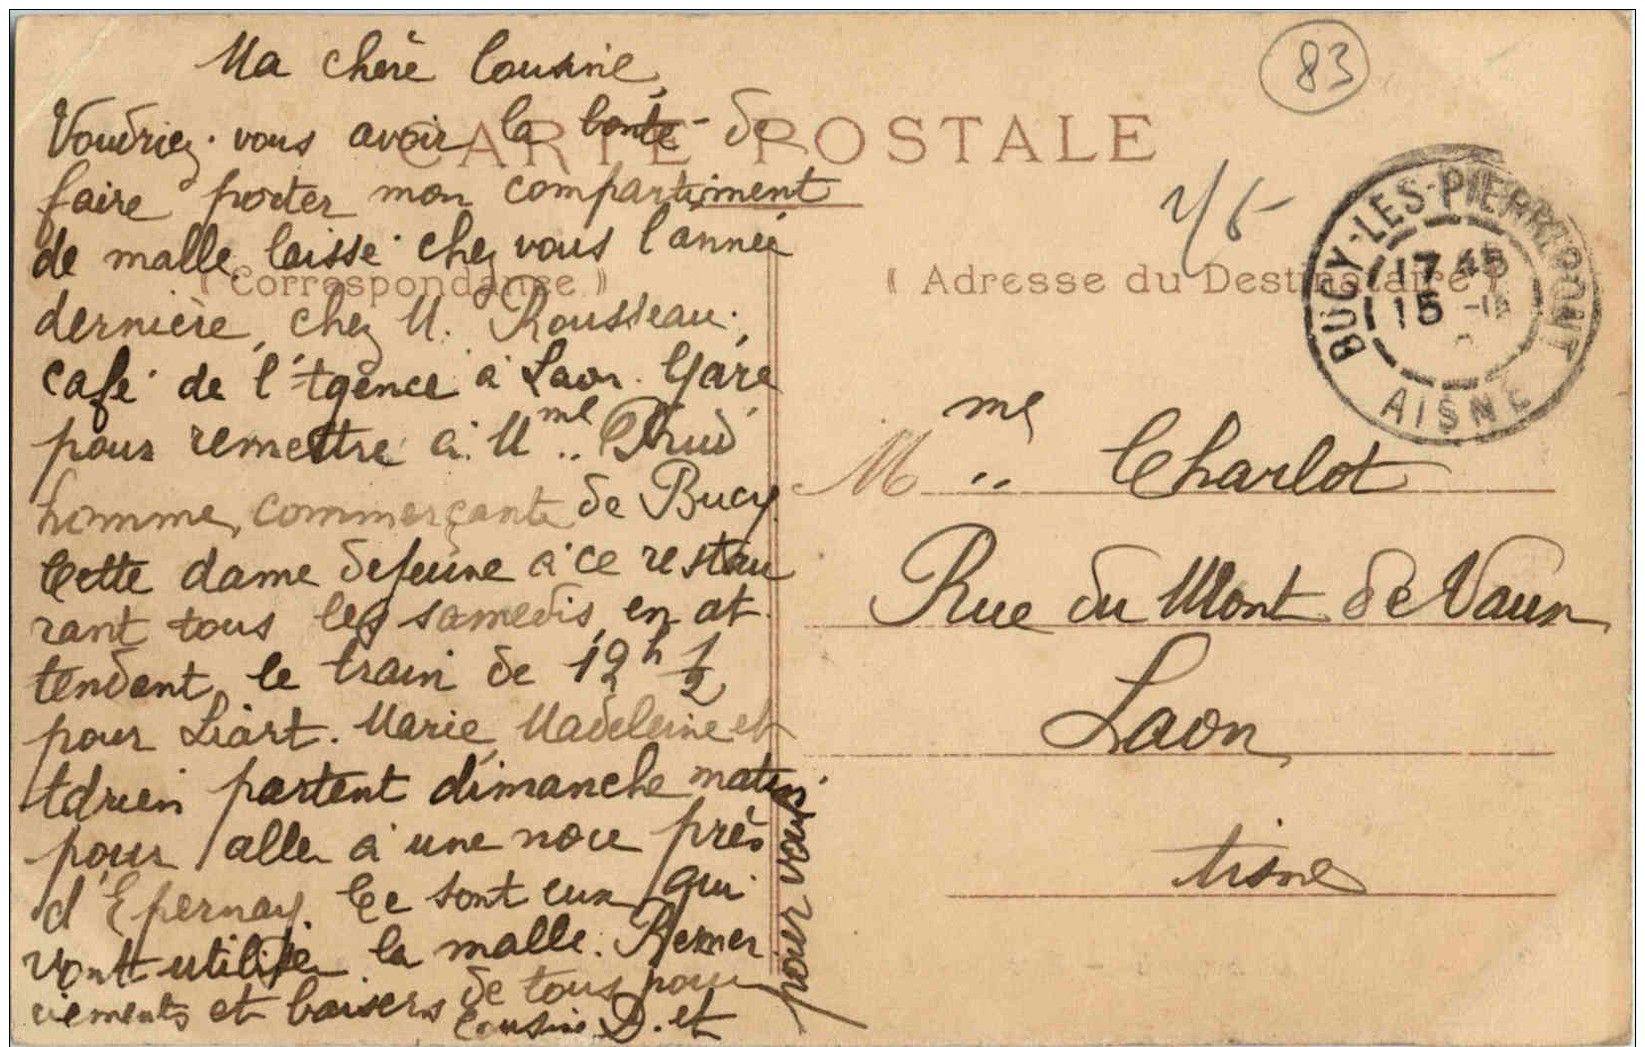 83
CARTE POSTALE
Ma chère Cousine,
Voudriez-vous avoir la bonté de
faire porter mon compartiment
de malle, laissé chez vous l'année
dernière, chez M. Rousseau,
café de l'Agence à Laon-Gare
pour remettre à Mme Prud'
homme, commerçante de Bucy.
Cette dame déjeune à ce restau
rant tous les samedis, en at
tendant le train de 12h 1/2
pour Liart. Marie, Madeleine et
Adrien partent dimanche matin
pour aller à une noce près
d'Epernay. Ce sont eux qui
vont utiliser la malle. Remer
ciements et baisers de tous pour
cousine D. et
pour vous.
(Correspondance)
(Adresse du Destinataire)
BUCY-LES-PIERREPONT
17 45
15
AISNE
Mme Charlot
Rue du Mont de Vaux
Laon
Aisne